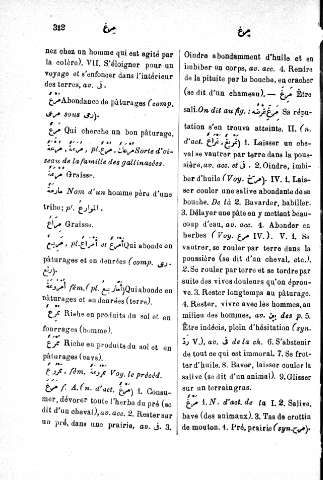 312 مرغ مرغ
nez chez un homme qui est agité par
la colère). VII. S'éloigner pour un
voyage et s'enfoncer dans l'intérieur
des terres, av. ف.
Abondance de pâturages (comp.
sous رى).
Qui cherche un bon pâturage.
pl. Sorte d'oi-
seau de la famille des gallinacées.
Graisse.
Nom d'un homme père d'une
tribu; pl.
Graisse.
pl. Qui abonde en
pâturages et en denrées (comp.
Qui abonde en
pâturages et en denrées (terre).
Riche en produits du sol et en
fourrages (homme).
Riche en produits du sol et en
pâturages (pays).
fém. Voy. le précéd.
مرغ f. A. (n. d'act. مرغ) 1. Consu-
mer, dévorer toute l'herbe du pré (se
dit d'un cheval), av. acc. 2. Rester sur
un pré, dans une prairie, av. ف. 3.
Oindre abondamment d'huile et en
imbiber un corps, av. acc. 4. Rendre
de la pituite par la bouche, en cracher
(se dit d'un chameau). — Être
sali. On dit au fig. : Sa répu-
tation s'en trouva atteinte. II. (n.
d'act. تمريغ) 1. Laisser un che-
val se vautrer par terre dans la pous-
sière, av. acc. et ف. 2. Oindre, imbi-
ber d'huile (Voy. مرغ). IV. 1. Lais-
ser couler une salive abondante de sa
bouche. De là 2. Bavarder, babiller.
3. Délayer une pâte en y mettant beau-
coup d'eau, av. acc. 4. Abonder en
herbes (Voy. IV.). V. 1. Se
vautrer, se rouler par terre dans la
poussière (se dit d'un cheval, etc.).
2. Se rouler par terre et se tordre par
suite des vives douleurs qu'on éprou-
ve. 3. Rester longtemps au pâturage.
4. Rester, vivre avec les hommes, au
milieu des hommes, av. des p. 5.
Être indécis, plein d'hésitation (syn.
V.), av. ف de la ch. 6. S'abstenir
de tout ce qui est immoral. 7. Se frot-
ter d'huile. 8. Baver, laisser couler la
salive (se dit d'un animal). 9. Glisser
sur un terrain gras.
مرغ 1. N. d'act. de la I. 2. Salive,
bave (des animaux). 3. Tas de crottin
de mouton. 4. Pré, prairie (syn.